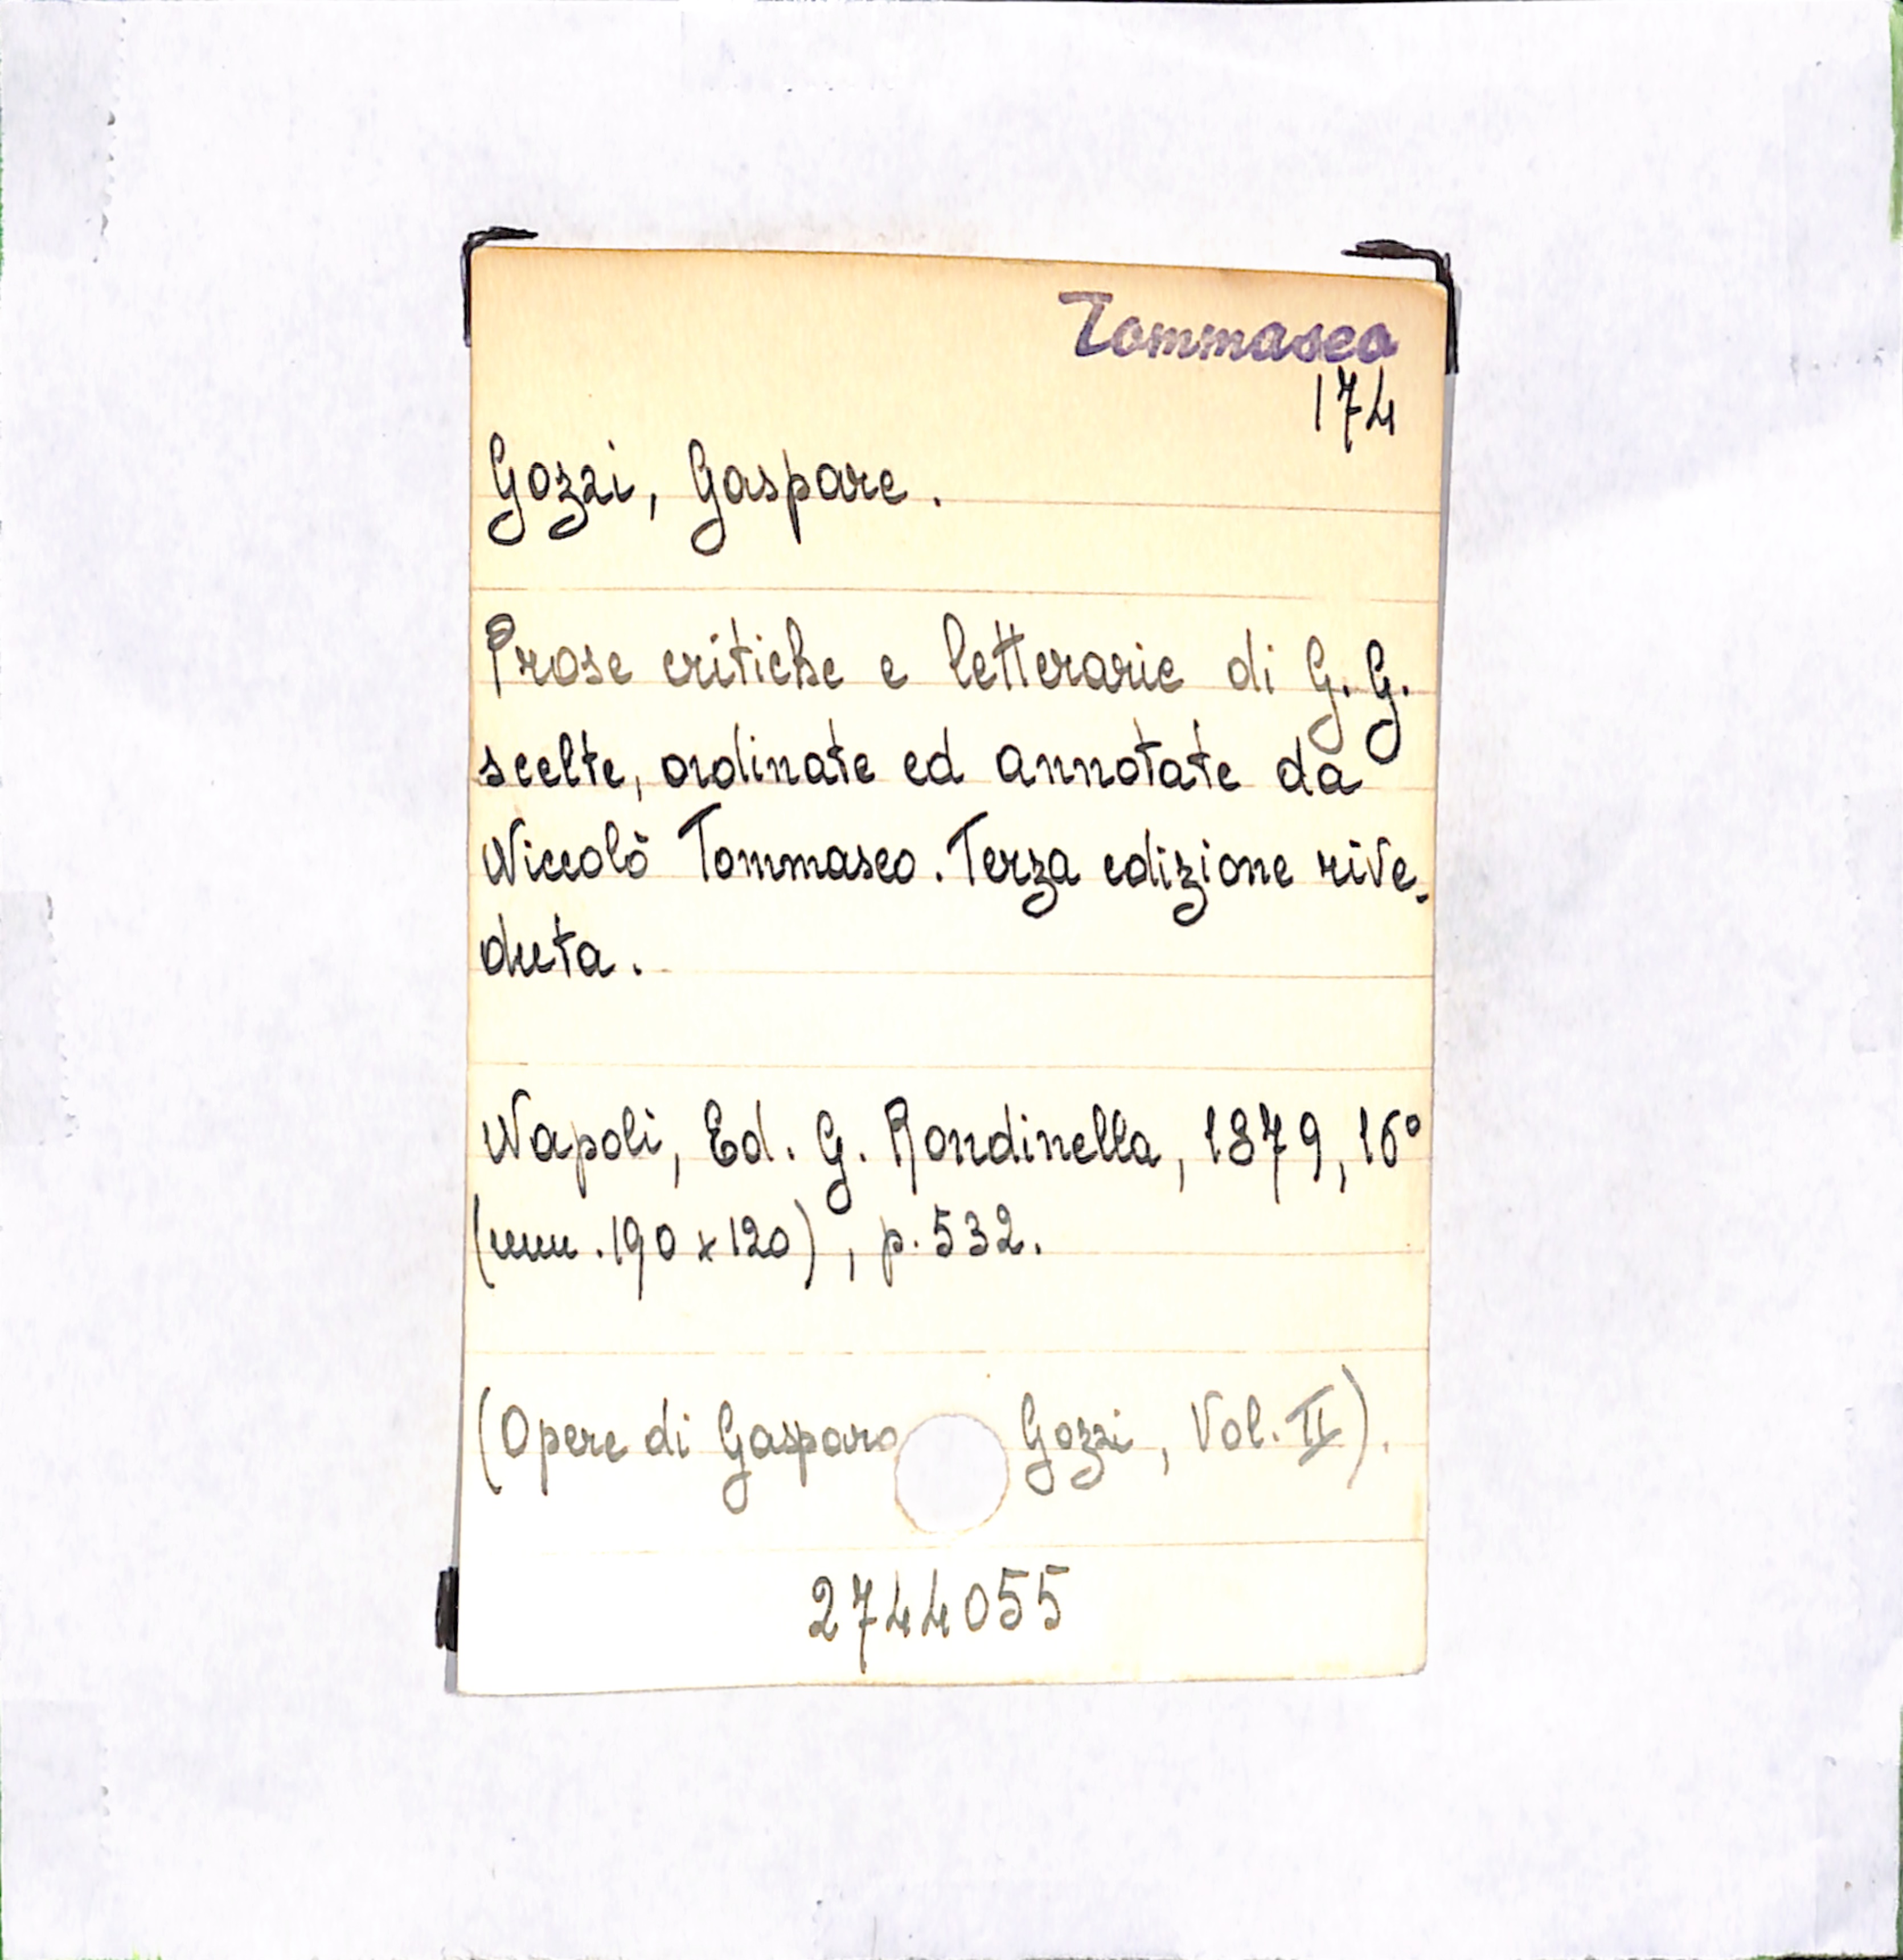 Tommaseo
174
Gozzi, Gaspare.
Prose critiche e letterarie di G. G.
scelte, ordinate ed annotate da
Niccolò Tommaseo. Terza edizione rive-
duta.
Napoli, Ed. G. Rondinella, 1879, 16°
(mm. 190 x 120), p. 532.
(Opere di Gasparo Gozzi, Vol. II).
2744055